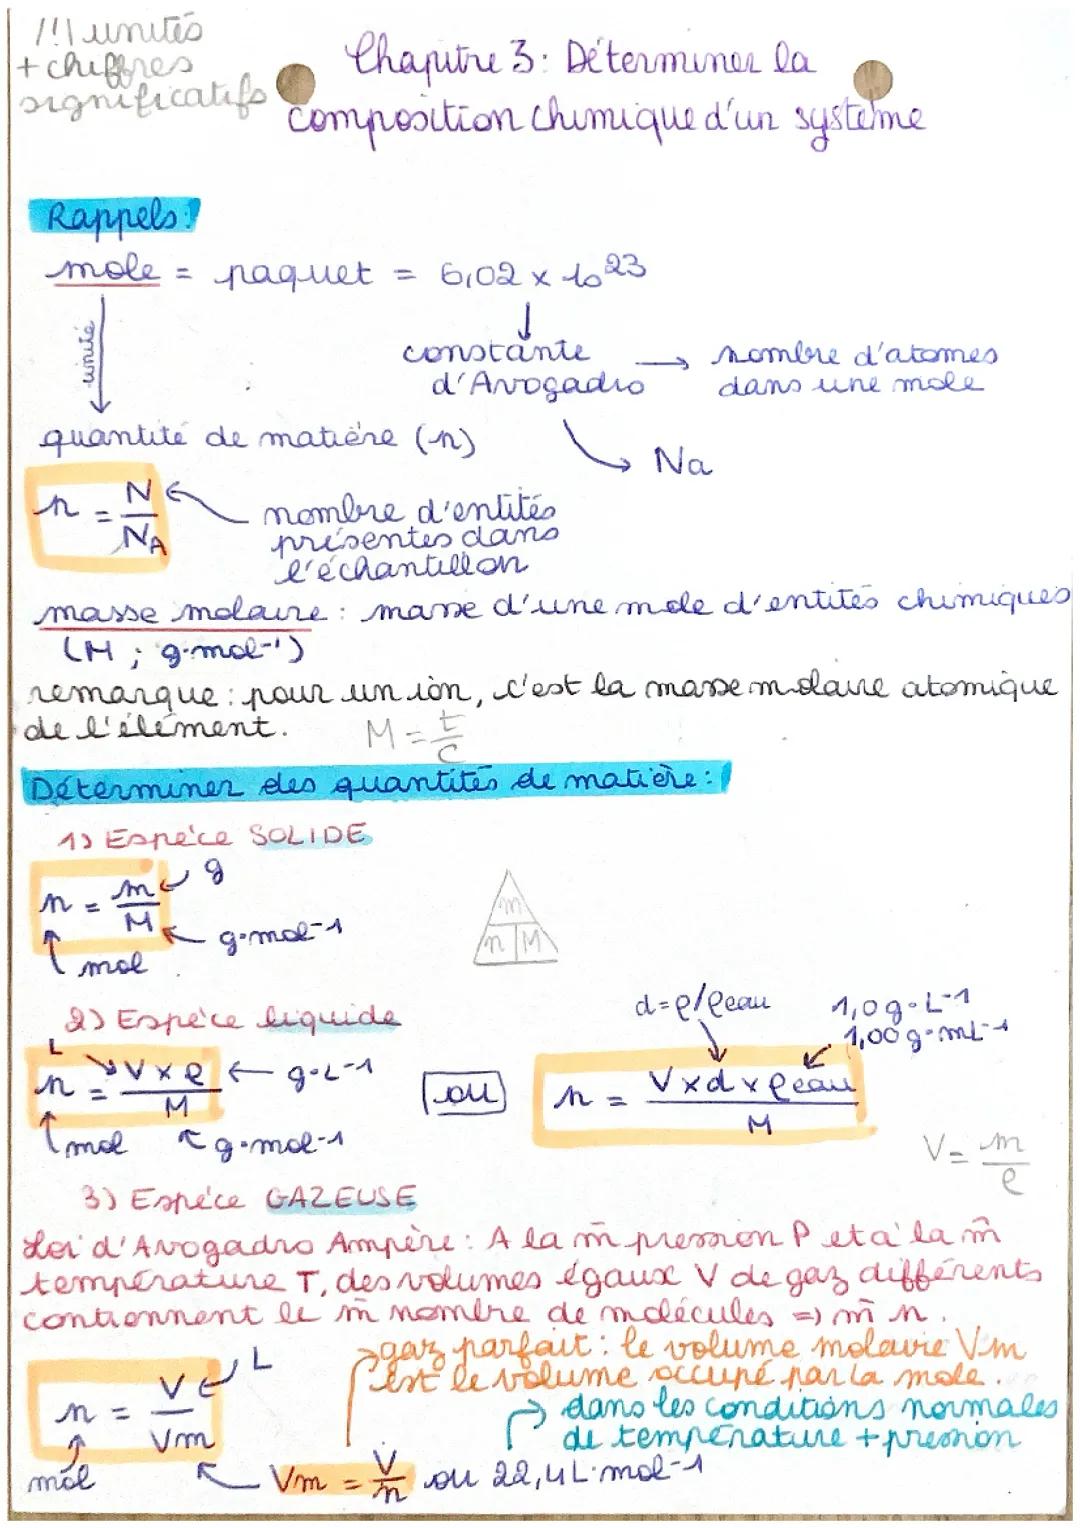 !!! unités
+ chiffres
significatifs
Chapitre 3: Déterminer la
composition chimique d'un système
Rappels:
mole = paquet = 6,02 x 10^23
unité
constante d'Avogadro → nombre d'atomes dans une mole
quantité de matière (n)
Na
n = N/NA
nombre d'entités
présentes dans
l'échantillon
masse molaire : masse d'une mole d'entités chimiques
(M ; g·mol-1)
remarque : pour un ion, c'est la masse molaire atomique
de l'élément.
M = t/C
Déterminer des quantités de matière :
1) Espèce SOLIDE
n = m/M
g
g·mol-1
mol
m
n | M
2) Espèce liquide
L
n = V x ρ / M
g·L-1
mol
g·mol-1
ou
d = ρ/ρeau
1,0 g·L-1
1,00 g·mL-1
n = V x d x ρeau / M
V = m/ρ
3) Espèce GAZEUSE
Loi d'Avogadro Ampère : A la m̂ pression P et à la m̂
température T, des volumes égaux V de gaz différents
contiennent le m̂ nombre de molécules => m̂ n.
gaz parfait : le volume molaire Vm
est le volume occupé par la mole.
n = V/Vm
L
mol
dans les conditions normales
de température + pression
Vm = V/n ou 22,4 L·mol-1